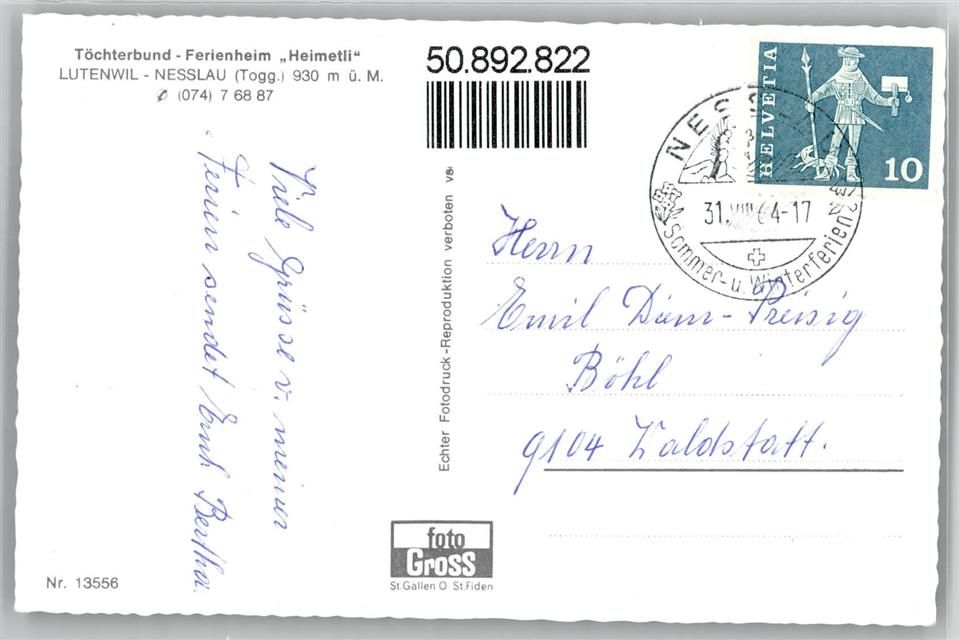 Töchterbund - Ferienheim „Heimetli“
LUTENWIL - NESSLAU (Togg.) 930 m ü. M.
✆ (074) 7 68 87
50.892.822
HELVETIA
10
31.VIII.64-17
Sommer- u. Winterferien
Viele Grüsse v. meinen
Ferien sendet Euch Bertha.
Echter Fotodruck-Reproduktion verboten
Herrn
Emil Preisig
Böhl
9104 Waldstatt.
foto
Gross
St.Gallen O St.Fiden
Nr. 13556